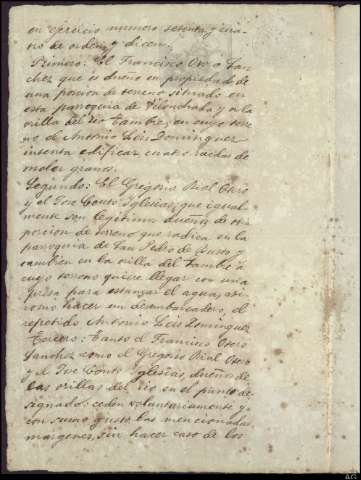 en ejercicio numero setenta y cua-
tro de orden, y dicen:
Primero: El Francisco Otero San-
chez que es dueño en propiedad de
una porcion de terreno situado en
esta parroquia de Vilouchada y a la
orilla del rio Tambre, en cuyo terre-
no de Antonio Leis Dominguez
intenta edificar cuatro ruedas de
moler granos.
Segundo: El Gregorio Rial Otero
y el Jose Couto Iglesias, que igual-
mente son legitimos dueños de otra
porcion de terreno que radica en la
parroquia de San Pedro de Busto y
tambien en la orilla del Tambre a
cuyo terreno quiere llegar con una
presa para estanzar el agua, asi
como hacer un desembarcadero, el
repetido Antonio Leis Dominguez
Tercero: Tanto el Francisco Otero
Sanchez como el Gregorio Rial Otero
y el Jose Couto Iglesias, dueños de
las orillas del rio en el punto de-
signado: ceden voluntariamente y
con sumo gusto las mencionadas
margenes, sin hacer caso de los